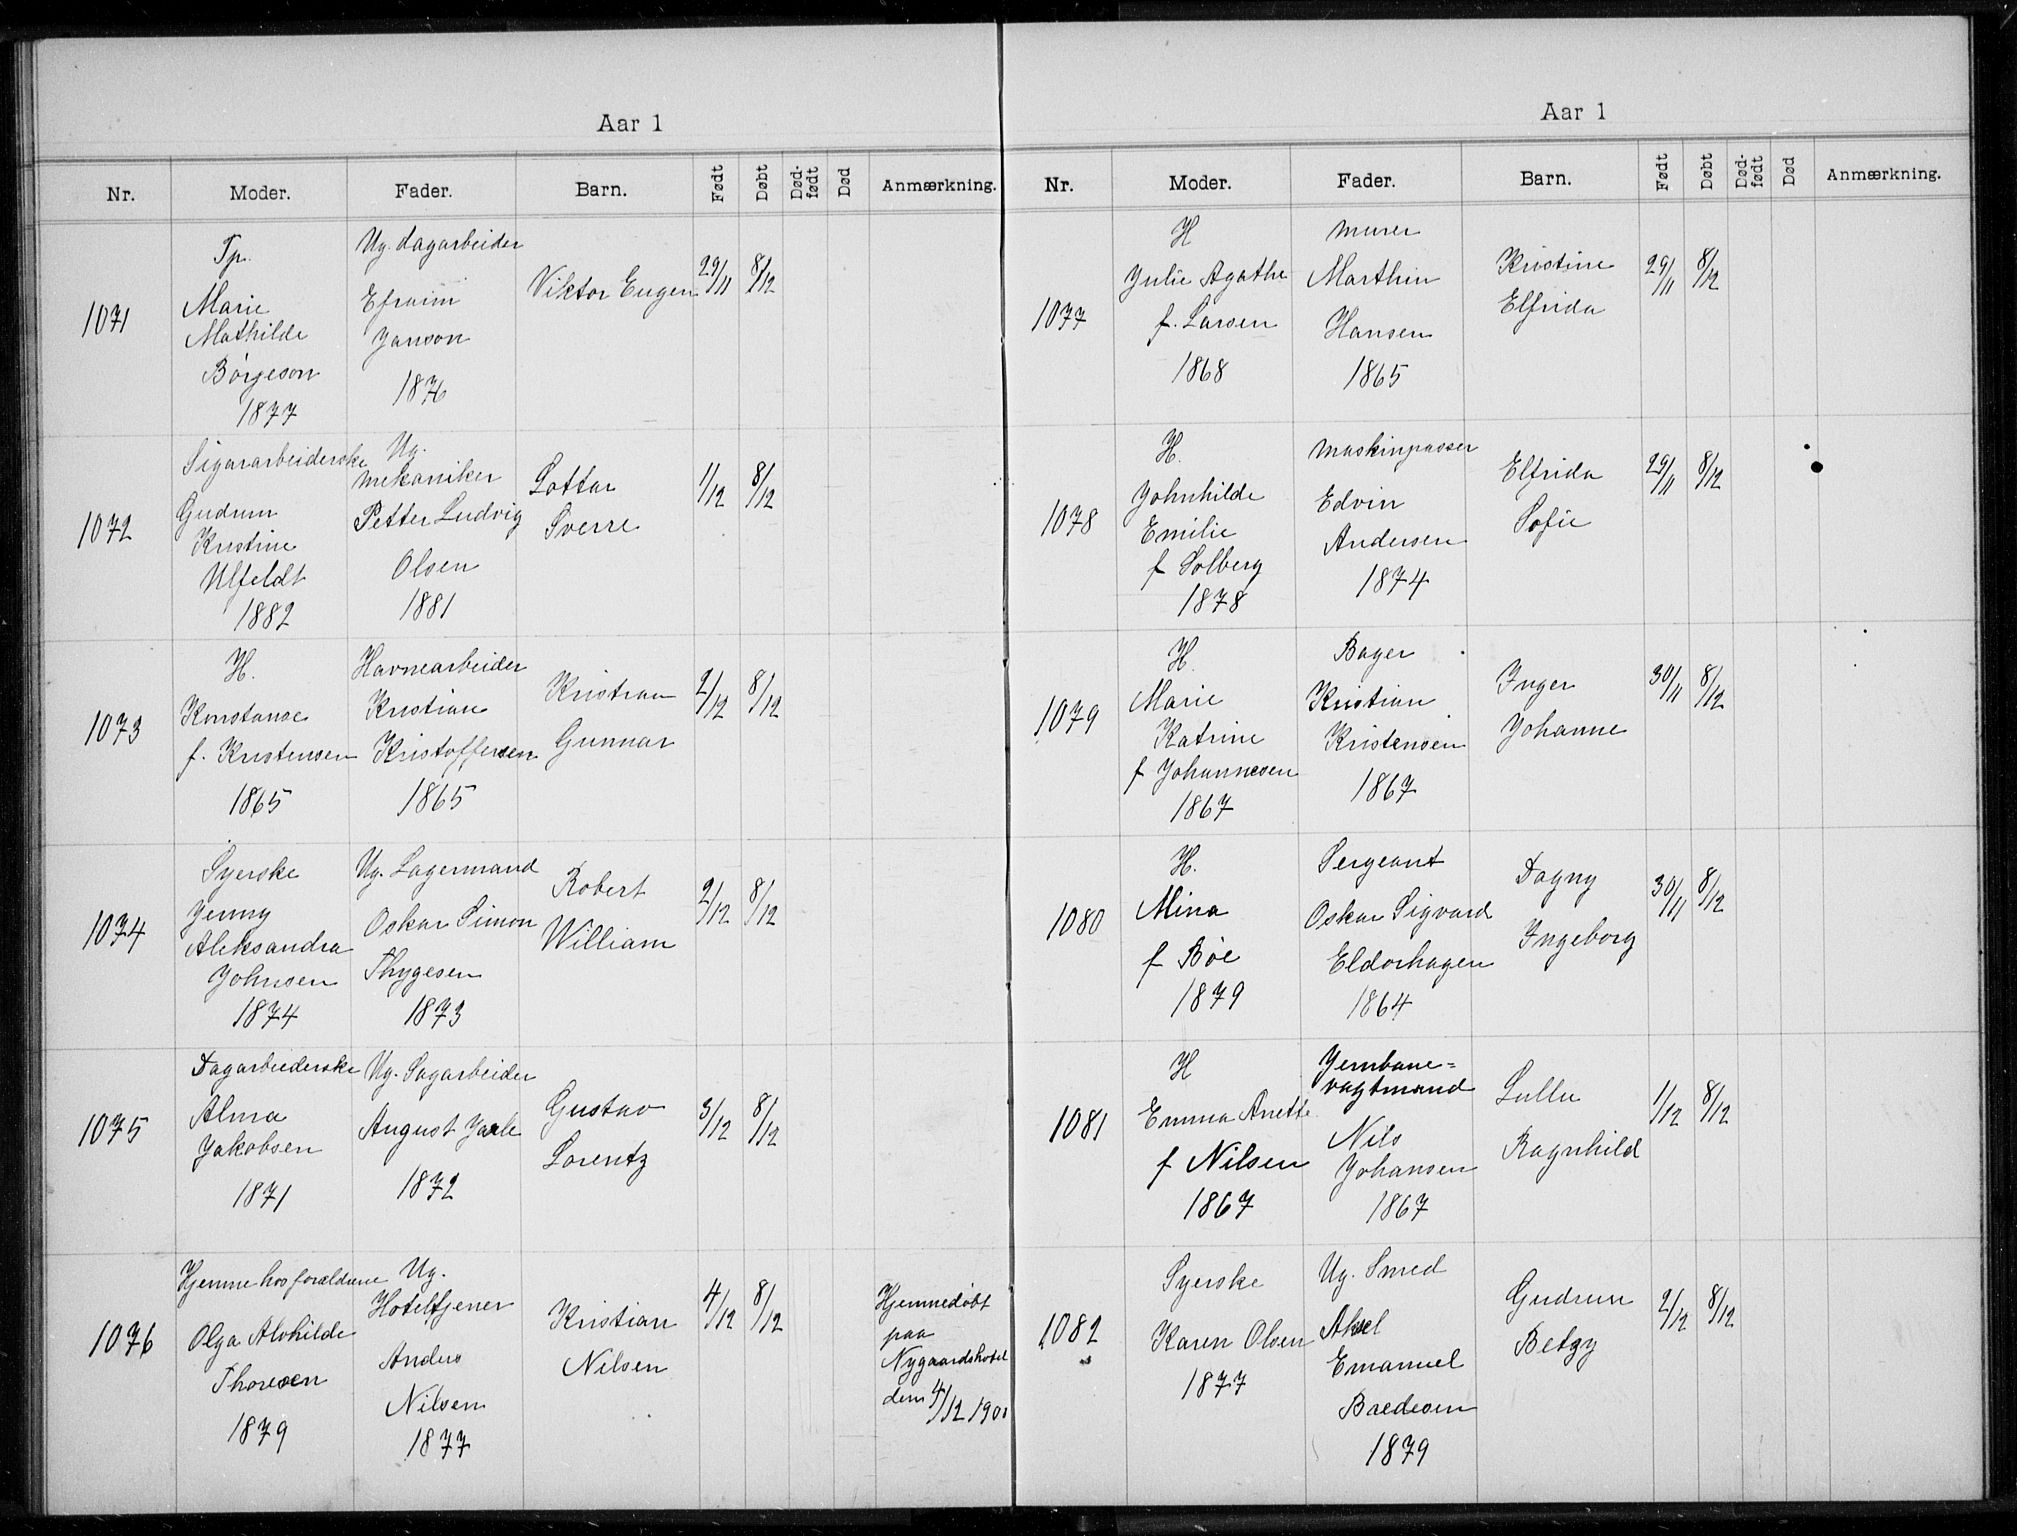 Aar 1
Nr. Moder. Fader. Barn. Født Døbt Død-født Død Anmærkning.
1071
Tp.
Marie
Mathilde
Børgeson
1877
Ug. dagarbeider
Efraim
Janson
1876
Viktor Eugen
29/11 8/12
1072
Sigararbeiderske
Gudrun
Kristine
Ulfeldt
1882
Ug.
mekaniker
Petter Ludvig
Olsen
1881
Lottar
Sverre
1/12 8/12
1073
H.
Konstanse
f. Kristensen
1865
Havnearbeider
Kristian
Kristoffersen
1865
Kristian
Gunnar
2/12 8/12
1074
Syerske
Jenny
Aleksandra
Johnsen
1874
Ug. Lagermand
Oskar Simon
Thygesen
1873
Robert
William
2/12 8/12
1075
Dagarbeiderske
Alma
Jakobsen
1871
Ug. Sagarbeider
August Jarle
1872
Gustav
Lorentz
3/12 8/12
1076
Hjemme hos forældrene
Olga Alvhilde
Thoresen
1879
Ug.
Hoteltjener
Anders
Nilsen
1877
Kristian
Nilsen
4/12 8/12
Hjemmedøbt
paa
Nygaardshotel
den 4/12 1901
Aar 1
Nr. Moder. Fader. Barn. Født Døbt Død-født Død Anmærkning.
1077
H
Julie Agathe
f. Larsen
1868
murer
Marthin
Hansen
1865
Kristine
Elfrida
29/11 8/12
1078
H.
Johnhilde
Emilie
f Solberg
1878
maskinpasser
Edvin
Andersen
1874
Elfrida
Sofie
29/11 8/12
1079
H.
Marie
Katrine
f Johannesen
1867
Bager
Kristian
Kristensen
1867
Inger
Johanne
30/11 8/12
1080
H.
Mina
f Bøe
1879
Sergeant
Oskar Sigvard
Eldorhagen
1864
Dagny
Ingeborg
30/11 8/12
1081
H
Emma Anette
f Nilsen
1867
Jernbane=
vagtmand
Nils
Johansen
1867
Lullu
Ragnhild
1/12 8/12
1082
Syerske
Karen Olsen
1877
Ug. Smed
Aksel
Emanuel
Baedesen
1879
Gudrun
Betzy
2/12 8/12